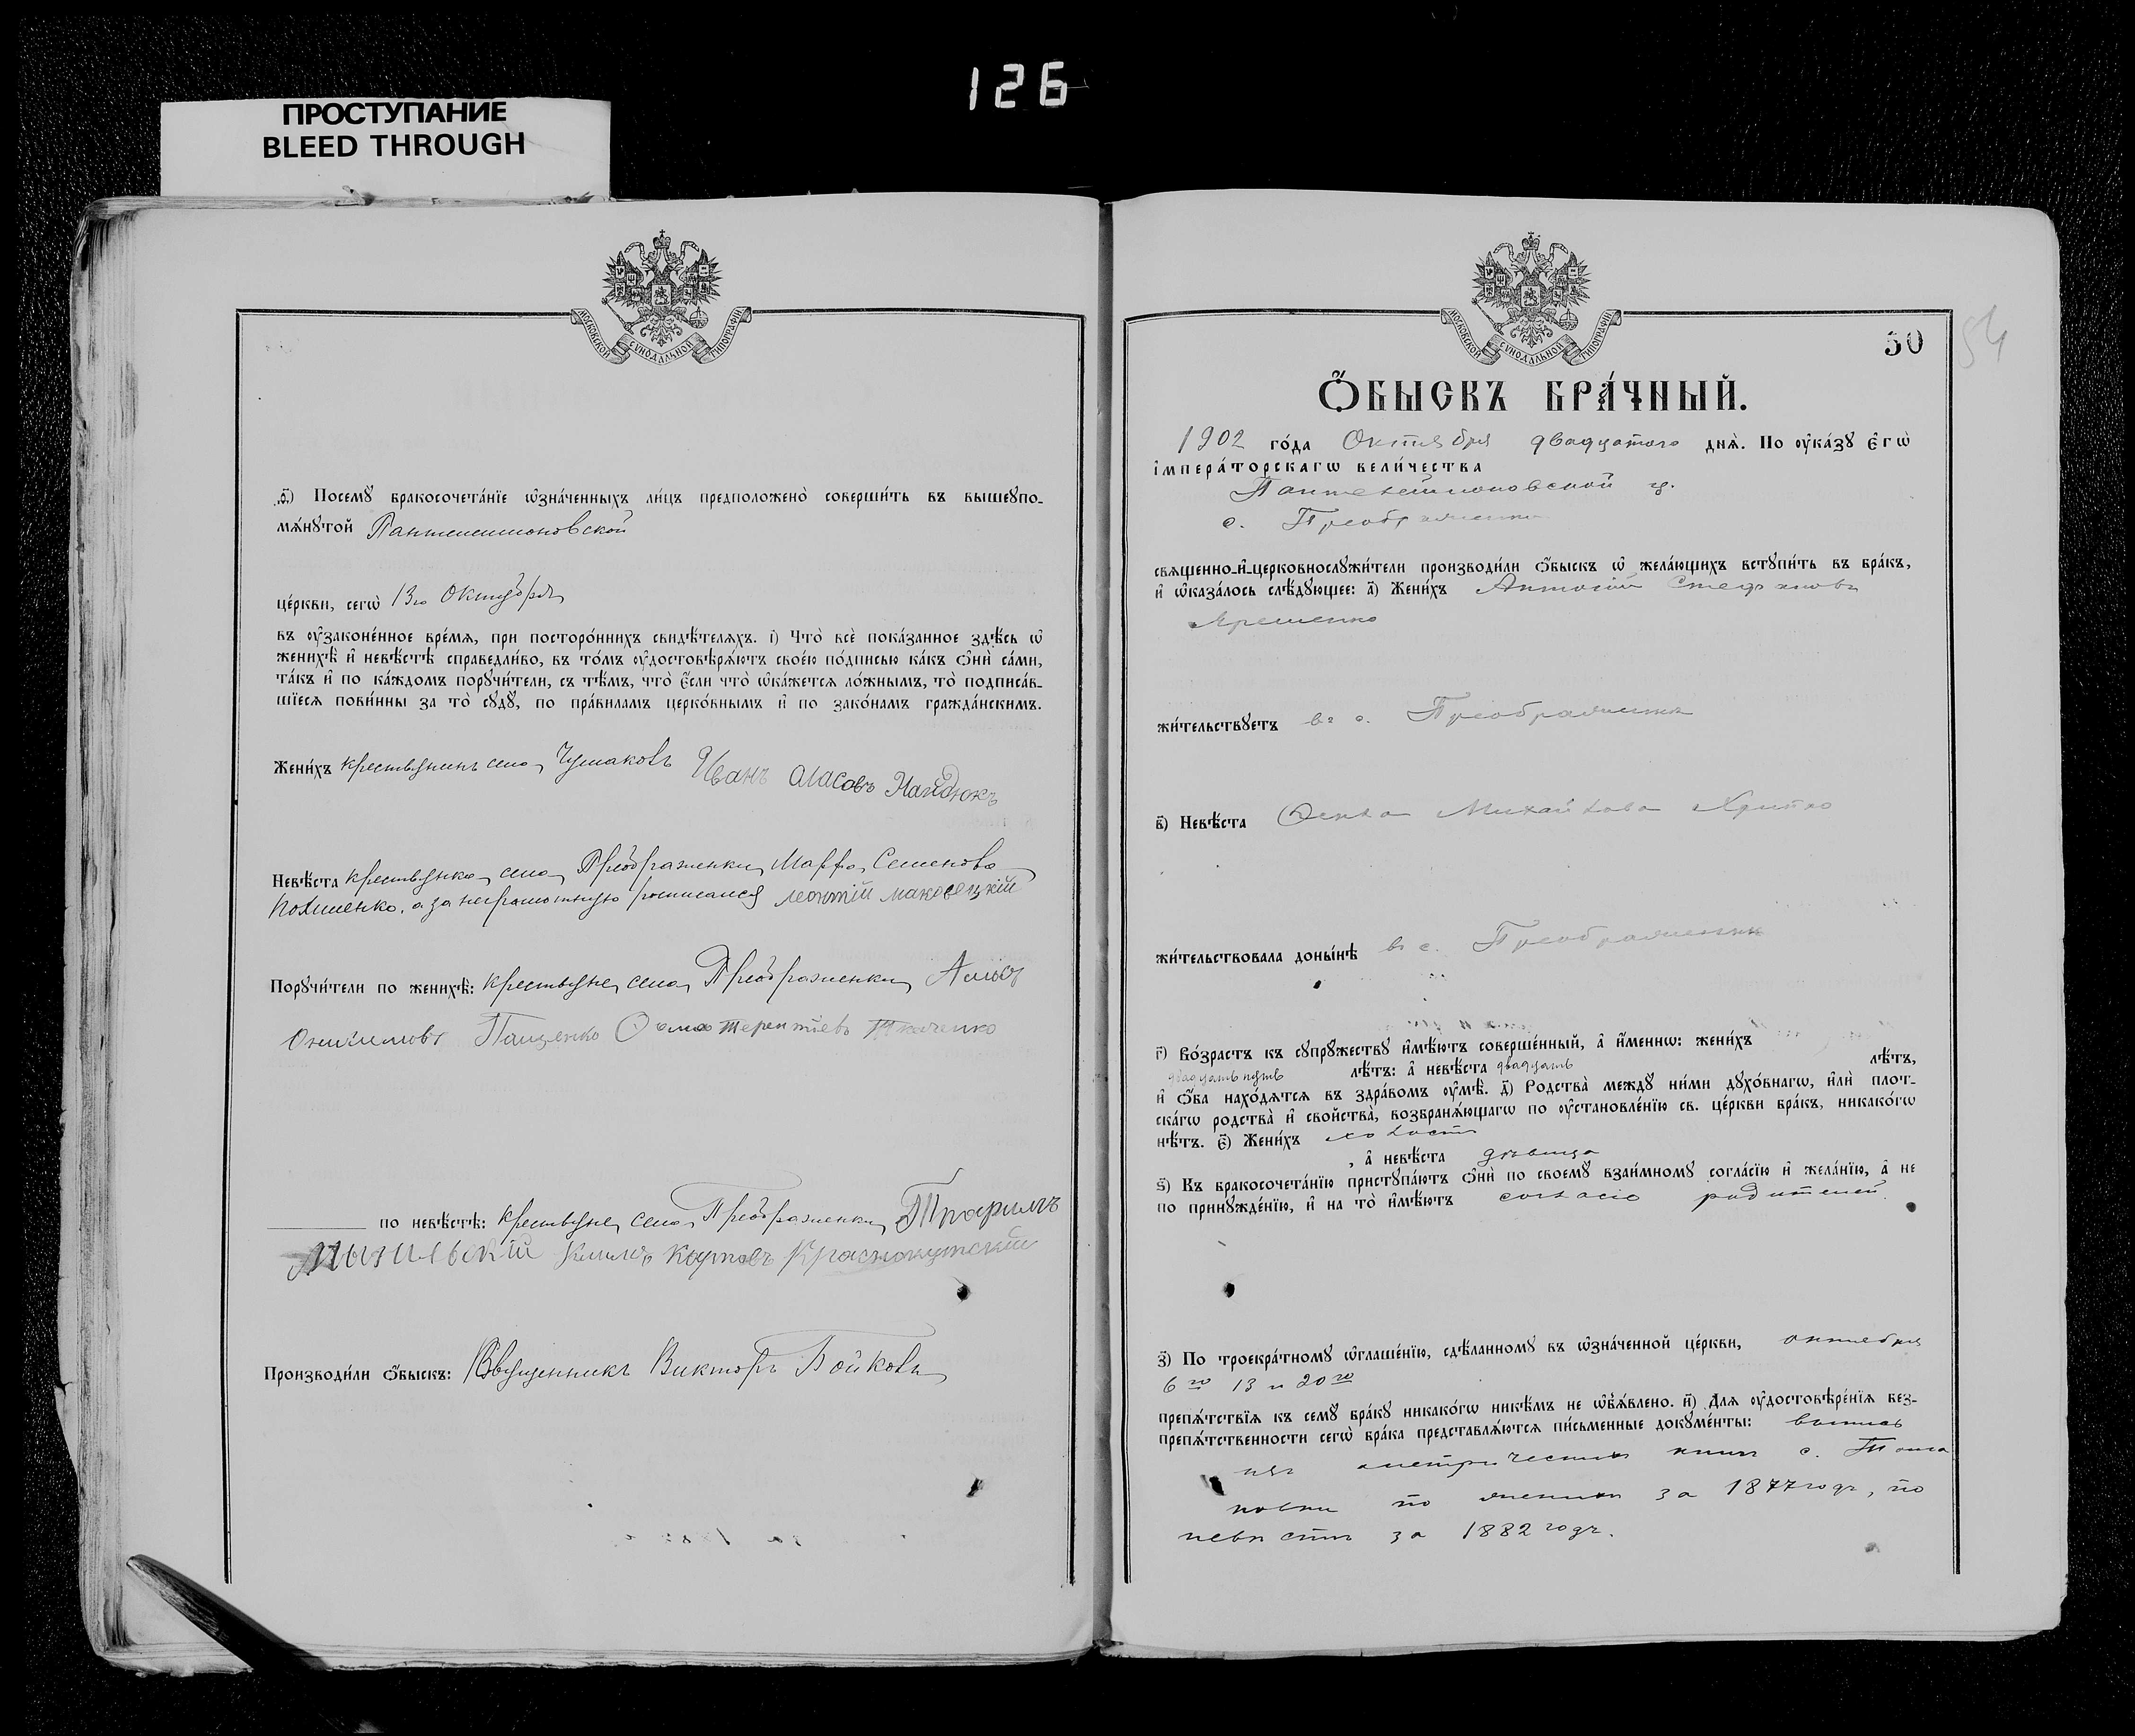 126
ПРОСТУПАНИЕ
BLEED THROUGH
МОСКОВСКОЙ СѴНОДАЛЬНОЙ ТИПОГРАФІИ
ѳ҃) Посемꙋ бракосочета́нїе ѡ҆зна́ченныхъ ли́цъ предположено̀ соверши́ть въ вышеꙋпо-
мѧ́нꙋтой Пантелеимоновской
це́ркви, сегѡ̀ 13го Октября
въ оу҆законе́нное вре́мѧ, при посторо́ннихъ свидѣ́телѧхъ. і҃) Что̀ всѐ пока́занное здѣ́сь ѡ҆
женихѣ̀ и҆ невѣ́стѣ справедли́во, въ то́мъ оу҆достовѣрѧ́ютъ свое́ю по́дписью ка́къ ѻ҆нѝ са́ми,
та́къ и҆ по ка́ждомъ порꙋчи́тели, съ тѣ́мъ, что̀ є҆́сли что̀ ѡ҆ка́жетсѧ ло́жнымъ, то̀ подписа́в-
шїесѧ пови́нны за то̀ сꙋдꙋ̀, по пра́виламъ церко́внымъ и҆ по зако́намъ гражда́нскимъ.
Жени́хъ крестьянинъ села Чумаковъ Иванъ Найдюкъ
Невѣ́ста крестьянка села Преображенки Марфа Семенова
а за неграмотную росписался Леонтій Маковецкій
Порꙋчи́тели по женихѣ̀: крестьяне села Преображенки
Пащенко Ѳома Терентіевъ Ткаченко
по невѣ́стѣ: крестьяне села Преображенки
Климъ Карповъ Краснокутскій
Производи́ли ѻ҆́быскъ: Священникъ Викторъ Бойковъ
МОСКОВСКОЙ СѴНОДАЛЬНОЙ ТИПОГРАФІИ
50
54
Ѻ҆́БЫСКЪ БРА́ЧНЫЙ.
1902 го́да Октября двадцатого днѧ̀. По оу҆ка́зꙋ є҆гѡ̀
і҆мпера́торскагѡ вели́чества
Пантелеймоновской ц.
с. Преображенки
свѧщенно-и҆-церковнослꙋжи́тели производи́ли ѻ҆́быскъ ѡ҆ жела́ющихъ встꙋпи́ть въ бра́къ,
и҆ ѡ҆каза́лось слѣ́дꙋющее: а҃) Жени́хъ Антоній Стефановъ
Ярешенко
жи́тельствꙋетъ въ с. Преображенки
в҃) Невѣ́ста Михайлова
жи́тельствовала доны́нѣ въ с. Преображенки
г҃) Во́зрастъ къ сꙋпрꙋ́жествꙋ и҆мѣ́ютъ соверше́нный, а҆ и҆́меннѡ: жени́хъ
двадцать пять лѣ́тъ: а҆ невѣ́ста двадцать лѣ́тъ,
и҆ ѻ҆́ба нахо́дѧтсѧ въ здра́вомъ оу҆мѣ̀. д҃) Родства̀ междꙋ̀ ни́ми дꙋхо́внагѡ, и҆лѝ плот-
ска́гѡ родства̀ и҆ сво́йства̀, возбранѧ́ющагѡ по оу҆становле́нїю св. це́ркви бра́къ, никако́гѡ
нѣ́тъ. є҃) Жени́хъ холостъ
, а҆ невѣ́ста дѣвица
ѕ҃) Къ бракосочета́нїю пристꙋпа́ютъ ѻ҆нѝ по своемꙋ̀ взаи́мномꙋ согла́сїю и҆ жела́нїю, а҆ не
по принꙋжде́нїю, и҆ на то̀ и҆мѣ́ютъ согласіе родителей.
з҃) По троекра́тномꙋ ѡ҆глаше́нїю, сдѣ́ланномꙋ въ ѡ҆зна́ченной це́ркви, октября
6го 13 и 20го
препѧ́тствїѧ къ семꙋ̀ бра́кꙋ никако́гѡ никѣ́мъ не ѡ҆б̾ѧ́влено. и҃) Для оу҆достовѣре́нїѧ без-
препѧ́тственности сегѡ̀ бра́ка представлѧ́ютсѧ пи́сьменные докꙋме́нты: выпись
изъ метрическихъ книгъ с.
по жениху за 1877 годъ, по
невѣстѣ за 1882 годъ.